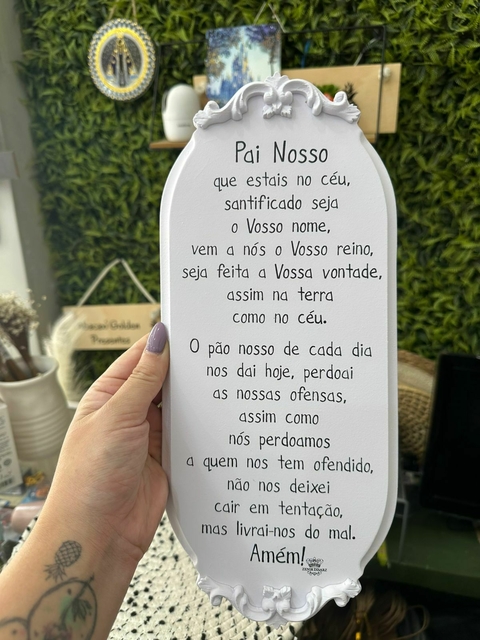 Pai Nosso
que estais no céu,
santificado seja
o Vosso nome,
vem a nós o Vosso reino,
seja feita a Vossa vontade,
assim na terra
como no céu.
O pão nosso de cada dia
nos dai hoje, perdoai
as nossas ofensas,
assim como
nós perdoamos
a quem nos tem ofendido,
não nos deixei
cair em tentação,
mas livrai-nos do mal.
Amém!